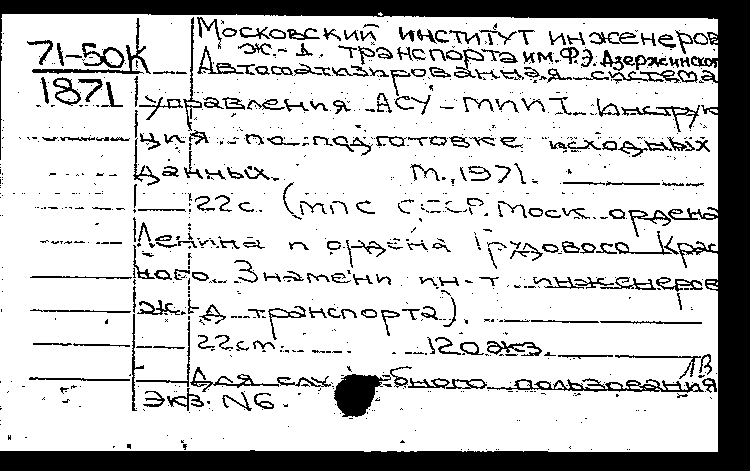 71-50К
1871
Московский институт инженеров
ж.-д. транспорта им. Ф.Э. Дзержинског
Автоматизированная система
управления АСУ-МИИТ. Инструк
ция по подготовке исходных
данных. М., 1971.
22 с. (МПС СССР. Моск. ордена
Ленина и ордена Трудового Крас
ного Знамени ин-т инженеров
ж.-д транспорта).
22 см. 120 экз.
1В
Для служебного пользования
Экз. N6.